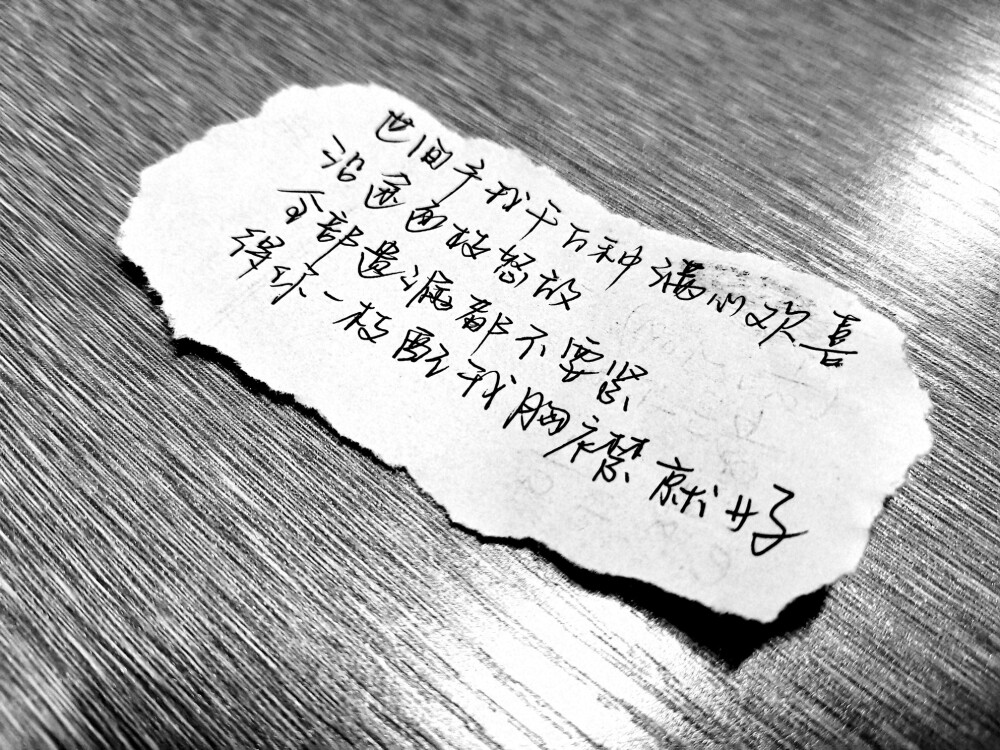 世间予我千万种满心欢喜
沿途画枝怒放
全部遗漏都不要紧
得你一枝配我胸襟就好